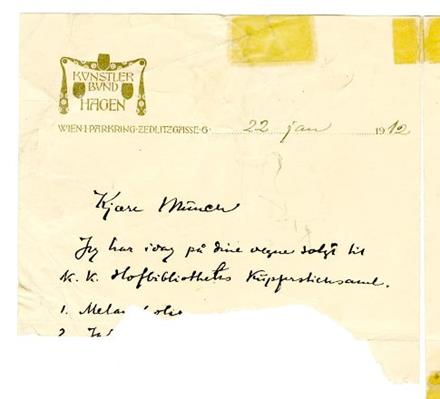 KÜNSTLER
BUND
HAGEN
WIEN·I·PARKRING·ZEDLITZGASSE·6· 22 jan 1912
Kjære Munch
Jeg har idag på dine vegne solgt til
K. K. Hofbibliotheks Kupferstichsaml.
1. Melankolie
2.